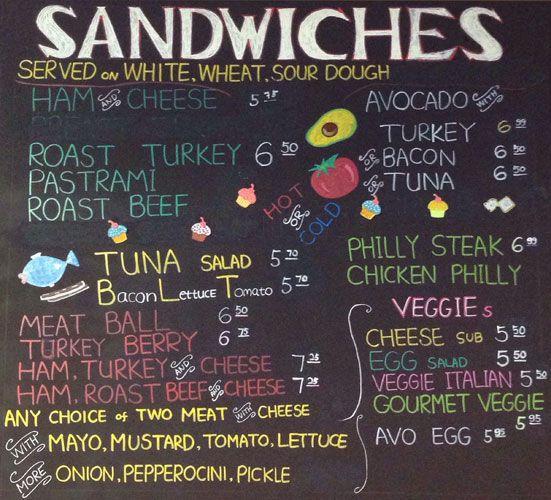 SANDWICHES
SERVED on WHITE, WHEAT, SOUR DOUGH
HAM AND CHEESE 5.75
ROAST TURKEY 6 50
PASTRAMI
ROAST BEEF
HOT
OR
COLD
AVOCADO WITH
TURKEY 6 99
OR BACON 6 50
OR TUNA 6 50
TUNA SALAD 5 70
Bacon Lettuce Tomato 5 70
MEAT BALL 6 50
TURKEY BERRY 6 75
HAM, TURKEY AND CHEESE 7 25
HAM, ROAST BEEF AND CHEESE 7 25
ANY CHOICE of TWO MEAT WITH CHEESE
WITH MAYO, MUSTARD, TOMATO, LETTUCE
MORE ONION, PEPPEROCINI, PICKLE
PHILLY STEAK 6 99
CHICKEN PHILLY
VEGGIEs
CHEESE SUB 5 50
EGG SALAD 5 50
VEGGIE ITALIAN 5 50
GOURMET VEGGIE 5 95
AVO EGG 5 95